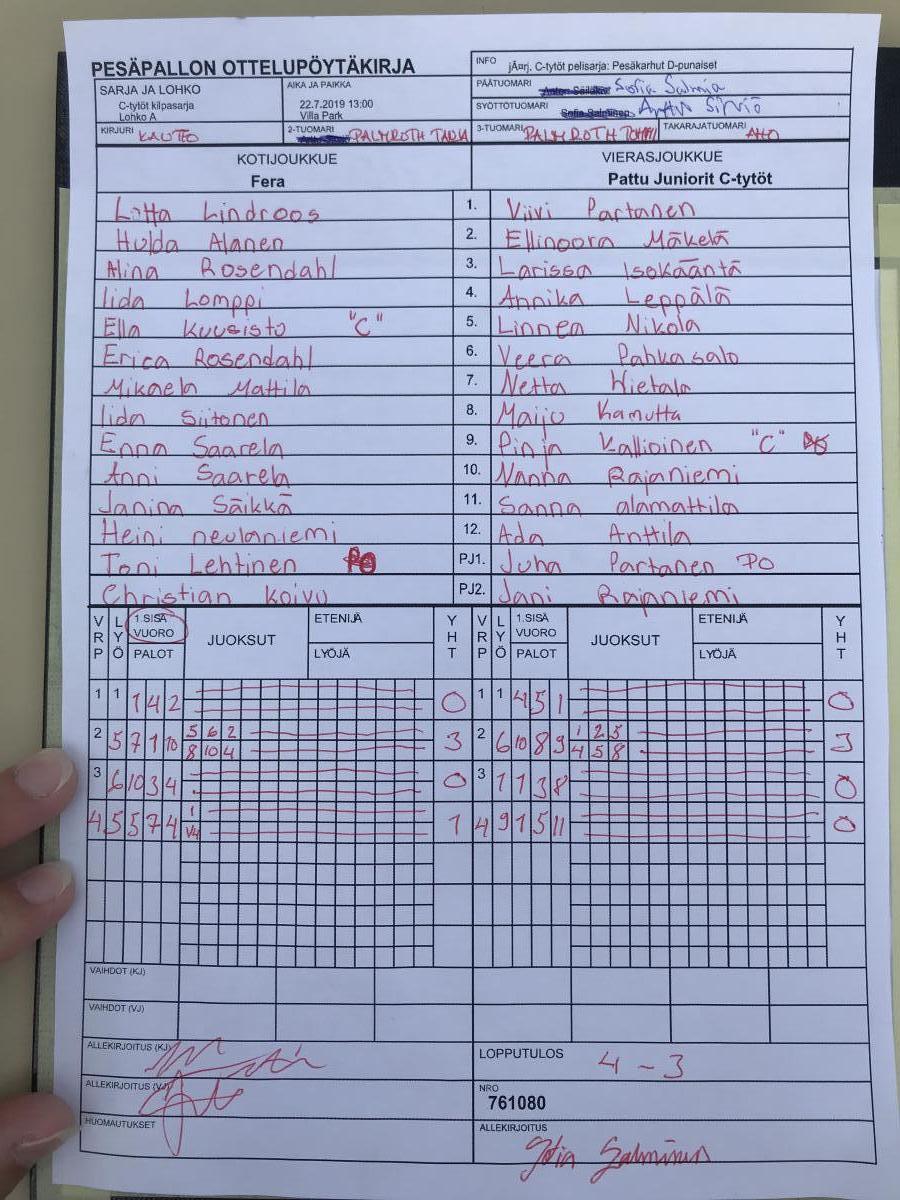 PESÄPALLON OTTELUPÖYTÄKIRJA
INFO jÃ¤rj. C-tytöt pelisarja: Pesäkarhut D-punaiset
SARJA JA LOHKO
C-tytöt kilpasarja
Lohko A
AIKA JA PAIKKA
22.7.2019 13:00
Villa Park
PÄÄTUOMARI Sofia
SYÖTTÖTUOMARI
KIRJURI KAUTTO
2-TUOMARI PALMROTH TARJA
3-TUOMARI PALMROTH
TAKARAJATUOMARI
KOTIJOUKKUE VIERASJOUKKUE
Fera Pattu Juniorit C-tytöt
Lotta Lindroos 1. Viivi Partanen
Hulda Alanen 2. Ellinoora Mäkelä
Alina Rosendahl 3. Larissa Isokääntä
Iida Lomppi 4. Annika Leppälä
Ella Kuusisto "C" 5. Linnea Nikola
Erica Rosendahl 6. Veera Pahkasalo
Mikaela Mattila 7. Netta Hietala
Iida Siitonen 8. Maiju Kamutta
Enna Saarela 9. Pinja Kallioinen "C"
Anni Saarela 10. Nanna Rajaniemi
Janina Säikkä 11. Sanna alamattila
Heini neulaniemi 12. Ada Anttila
Toni Lehtinen PJ1. Juha Partanen PO
Christian Koivu PJ2. Jani Rajaniemi
VRP LYÖ 1.SISÄ VUORO PALOT JUOKSUT ETENIJÄ LYÖJÄ YHT VRP LYÖ 1.SISÄ VUORO PALOT JUOKSUT ETENIJÄ LYÖJÄ YHT
1 1 1 4 2 0 1 1 4 5 1 0
2 5 7 1 10 5 6 2 3 2 6 10 8 9 1 2 5 3
8 10 4 4 5 8
3 6 10 3 4 0 3 1 1 3 8 0
4 5 5 7 4 1 1 4 9 1 5 11 0
V4
VAIHDOT (KJ)
VAIHDOT (VJ)
ALLEKIRJOITUS (KJ)
LOPPUTULOS 4 - 3
ALLEKIRJOITUS (VJ)
NRO
761080
HUOMAUTUKSET
ALLEKIRJOITUS
Sofia Salminen